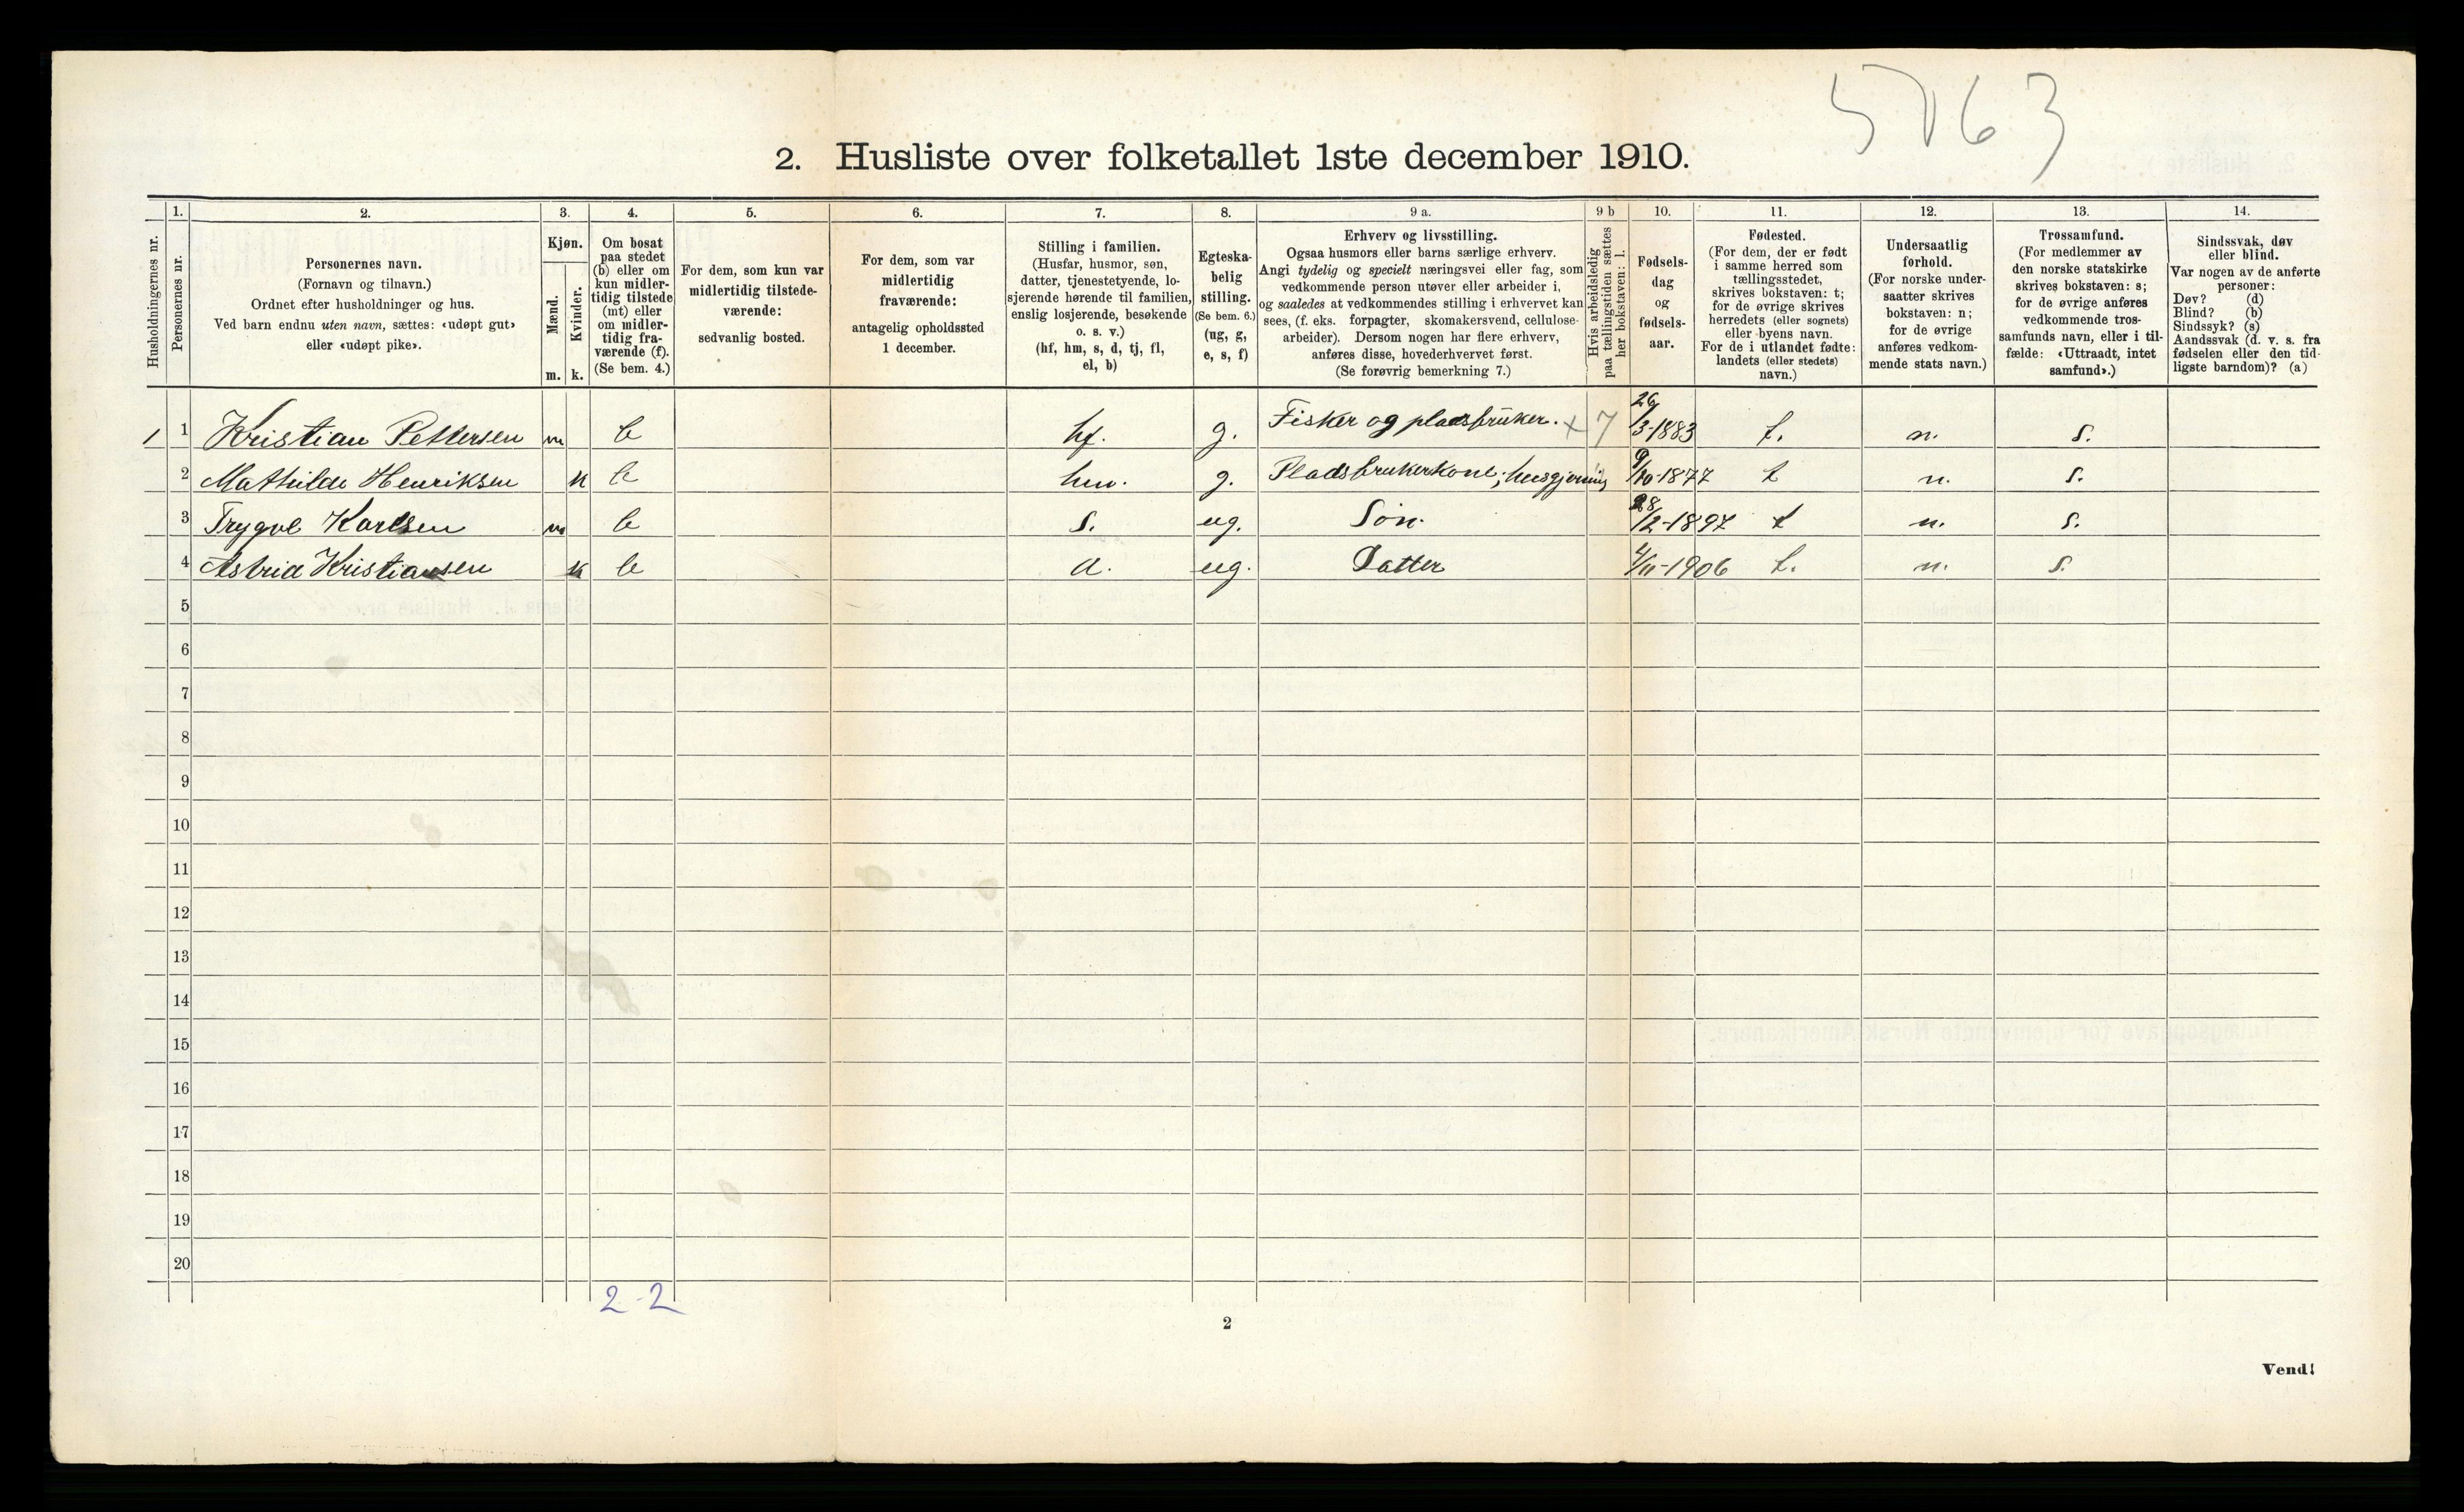 5063
2. Husliste over folketallet 1ste december 1910.
Husholdningernes nr.
1.
Personernes nr.
2.
Personernes navn.
(Fornavn og tilnavn.)
Ordnet efter husholdninger og hus.
Ved barn endnu uten navn, sættes: «udøpt gut»
eller «udøpt pike».
3.
Kjøn.
Mænd.
Kvinder.
m. k.
4.
Om bosat
paa stedet
(b) eller om
kun midler-
tidig tilstede
(mt) eller
om midler-
tidig fra-
værende (f).
(Se bem. 4.)
5.
For dem, som kun var
midlertidig tilstede-
værende:
sedvanlig bosted.
6.
For dem, som var
midlertidig
fraværende:
antagelig opholdssted
1 december.
7.
Stilling i familien.
(Husfar, husmor, søn,
datter, tjenestetyende, lo-
sjerende hørende til familien,
enslig losjerende, besøkende
o. s. v.)
(hf, hm, s, d, tj, fl,
el, b)
8.
Egteska-
belig
stilling.
(Se bem. 6.)
(ug, g,
e, s, f)
9 a.
Erhverv og livsstilling.
Ogsaa husmors eller barns særlige erhverv.
Angi tydelig og specielt næringsvei eller fag, som
vedkommende person utøver eller arbeider i,
og saaledes at vedkommendes stilling i erhvervet kan
sees, (f. eks. forpagter, skomakersvend, cellulose-
arbeider). Dersom nogen har flere erhverv,
anføres disse, hovederhvervet først.
(Se forøvrig bemerkning 7.)
9 b
Hvis arbeidsledig
paa tællingstiden sættes
her bokstaven: l.
10.
Fødsels-
dag
og
fødsels-
aar.
11.
Fødested.
(For dem, der er født
i samme herred som
tællingsstedet,
skrives bokstaven: t;
for de øvrige skrives
herredets (eller sognets)
eller byens navn.
For de i utlandet fødte:
landets (eller stedets)
navn.)
12.
Undersaatlig
forhold.
(For norske under-
saatter skrives
bokstaven: n;
for de øvrige
anføres vedkom-
mende stats navn.)
13.
Trossamfund.
(For medlemmer av
den norske statskirke
skrives bokstaven: s;
for de øvrige anføres
vedkommende tros-
samfunds navn, eller i til-
fælde: «Uttraadt, intet
samfund».)
14.
Sindssvak, døv
eller blind.
Var nogen av de anførte
personer:
Døv? (d)
Blind? (b)
Sindssyk? (s)
Aandssvak (d. v. s. fra
fødselen eller den tid-
ligste barndom)? (a)
1 1 Kristian Pettersen m b hf. g. Fisker og pladsbruker. + 7 26/3-1883 t. n. s.
2 Mathilde Henriksen k b hm. g. Pladsbrukerkone; husgjerning 9/10-1877 t n. s.
3 Trygve Karlsen m b s. ug. Søn. 28/12-1897 t n. s.
4 Astrid Kristiansen k b d. ug. Datter 4/11-1906 t. n. s.
5
6
7
8
9
10
11
12
13
14
15
16
17
18
19
20
2-2
2
Vend!